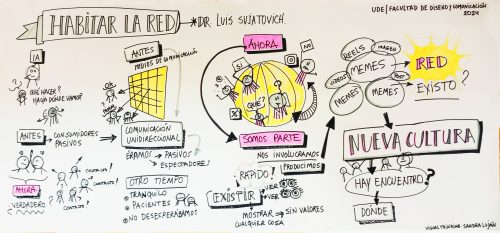 HABITAR LA RED
* DR. LUIS SUJATOVICH.
UDE / FACULTAD DE DISEÑO Y COMUNICACIÓN
2024
IA
¿QUÉ HACER?
¿HACIA DÓNDE VAMOS?
ANTES → CONSUMIDORES
PASIVOS
AHORA
¿VERDADERO?
ANTES
MEDIOS DE COMUNICACIÓN
COMUNICACIÓN
UNIDIRECCIONAL
ÉRAMOS → PASIVOS
ESPECTADORES!
OTRO TIEMPO
TRANQUILO
PACIENTES
NO DESESPERÁBAMOS
AHORA
SI
NO
¿QUÉ?
SOMOS PARTE
NOS INVOLUCRAMOS
PRODUCIMOS
RÁPIDO!
EXISTIR
VER
VER
MOSTRAR → SIN VALORES
CUALQUIER COSA
REELS
IMAGEN
VIDEOS
MEMES
POST
MEMES
MEMES
RED
EXISTO?
NUEVA CULTURA
¿HAY ENCUENTRO?
DONDE
VISUAL THINKING: SANDRA LUJÁN